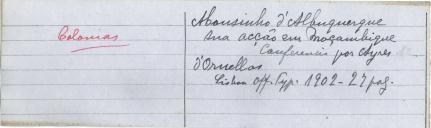 Colonias
Mousinho d'Albuquerque
sua acção em Moçambique
Conferencia por Ayres
d'Ornellas
Lisboa Off. Typ. 1902 - 27 pag.